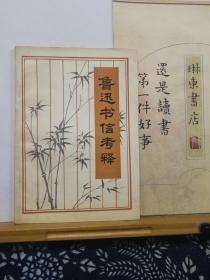 鲁迅书信考释
琳東書店
還是讀書
第一件好事